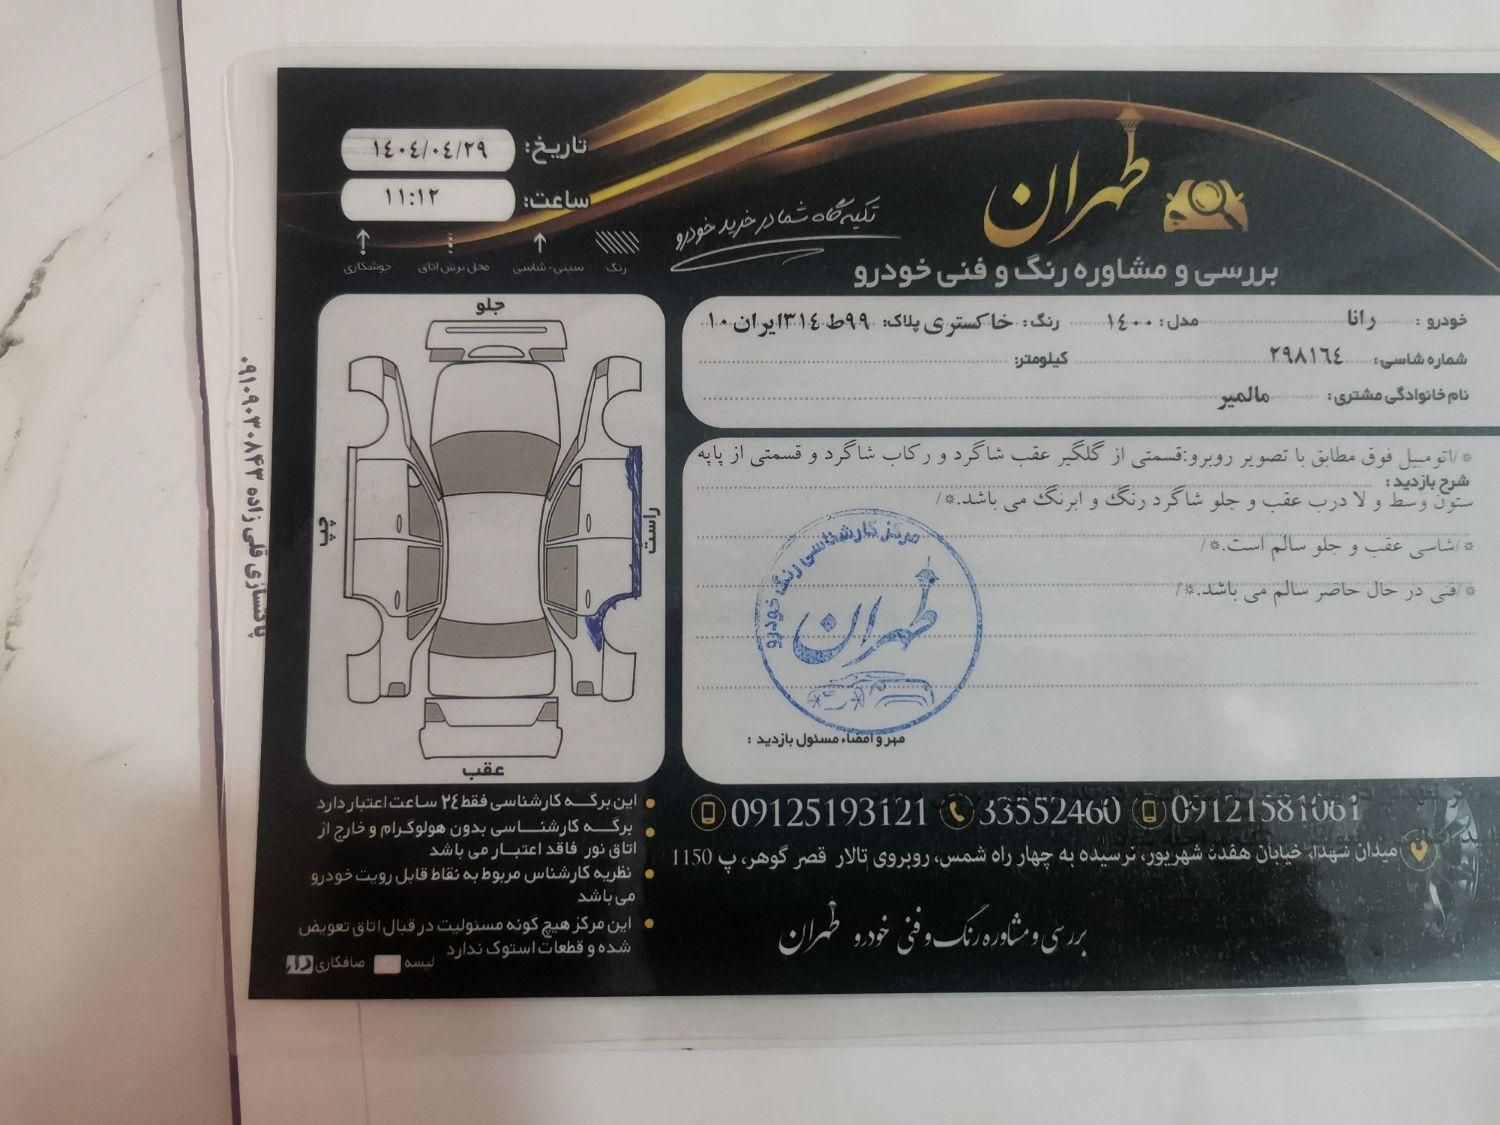 طهران
بررسی و مشاوره رنگ و فنی خودرو
تکیه گاه شما در خرید خودرو
تاریخ: ۱٤۰٤/۰٤/۲۹
ساعت: ۱۱:۱۲
رنگ
سینی-شاسی
محل برش اتاق
جوشکاری
خودرو : رانا مدل: ۱٤۰۰ رنگ: خاکستری پلاک: ۹۹ط۳۱٤ایران۱۰
شماره شاسی: ۲۹۸۱٦٤ کیلومتر:
نام خانوادگی مشتری: مالمیر
*/اتومبیل فوق مطابق با تصویر روبرو:قسمتی از گلگیر عقب شاگرد و رکاب شاگرد و قسمتی از پایه
شرح بازدید:
ستون وسط و لا درب عقب و جلو شاگرد رنگ و ابرنگ می باشد.*/
*/شاسی عقب و جلو سالم است.*/
*/فنی در حال حاضر سالم می باشد.*/
مرکز کارشناسی رنگ خودرو
طهران
مهر و امضاء مسئول بازدید :
جلو
راست
چپ
عقب
پاکسازی قلی زاده ۰۹۱۰۹۰۳۰۸۴۳
این برگه کارشناسی فقط ۲٤ ساعت اعتبار دارد
برگه کارشناسی بدون هولوگرام و خارج از
اتاق نور فاقد اعتبار می باشد
نظریه کارشناس مربوط به نقاط قابل رویت خودرو
می باشد
این مرکز هیچ گونه مسئولیت در قبال اتاق تعویض
شده و قطعات استوک ندارد
لیسه
صافکاری دارد
09125193121 33552460 09121581061
میدان شهدا، خیابان هفده شهریور، نرسیده به چهار راه شمس، روبروی تالار قصر گوهر، پ 1150
بررسی و مشاوره رنگ و فنی خودرو طهران